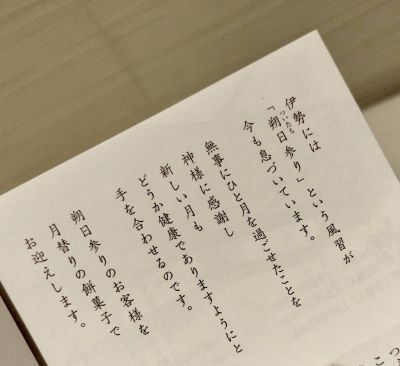 伊勢には
「朔日参り」という風習が
今も息づいています。
無事にひと月を過ごせたことを
神様に感謝し
新しい月も
どうか健康でありますようにと
手を合わせるのです。
朔日参りのお客様を
月替りの餅菓子で
お迎えします。